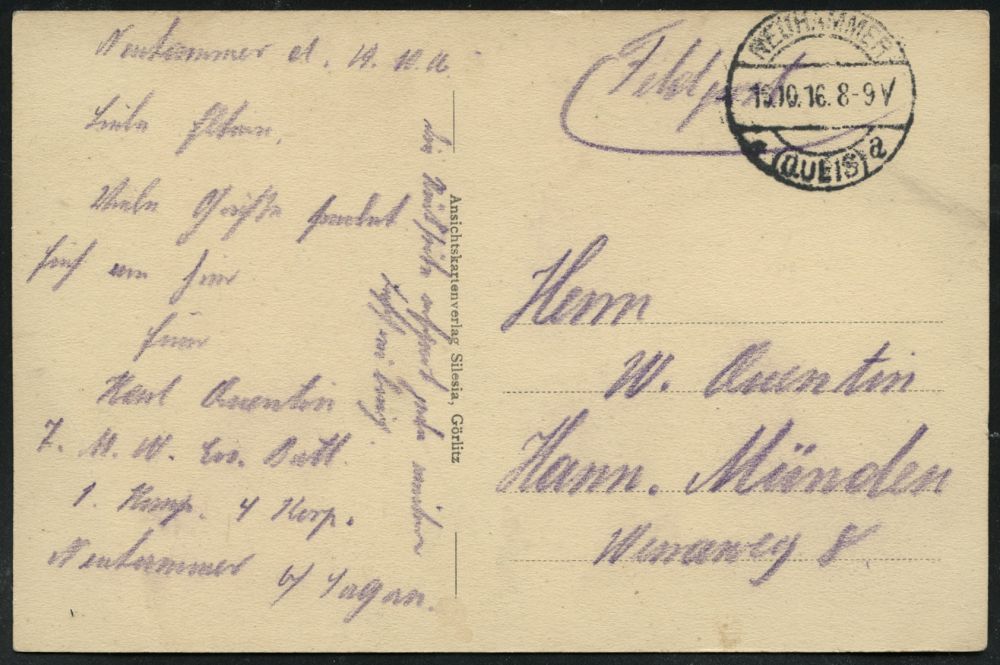 Neuhammer d. 14. 10. 16.
Liebe Eltern,
Viele Grüße sendet
Euch von hier
Euer
Karl Quentin
7. M. W. Ers. Batl.
1. Komp. 4 Korp.
Neuhammer b/ Sagan.
Feldpost
NEUHAMMER
15.10.16. 8-9 V
(QUEIS) a
Ansichtskartenverlag Silesia, Görlitz
Herrn
W. Quentin
Hann. Münden
Werraweg 8